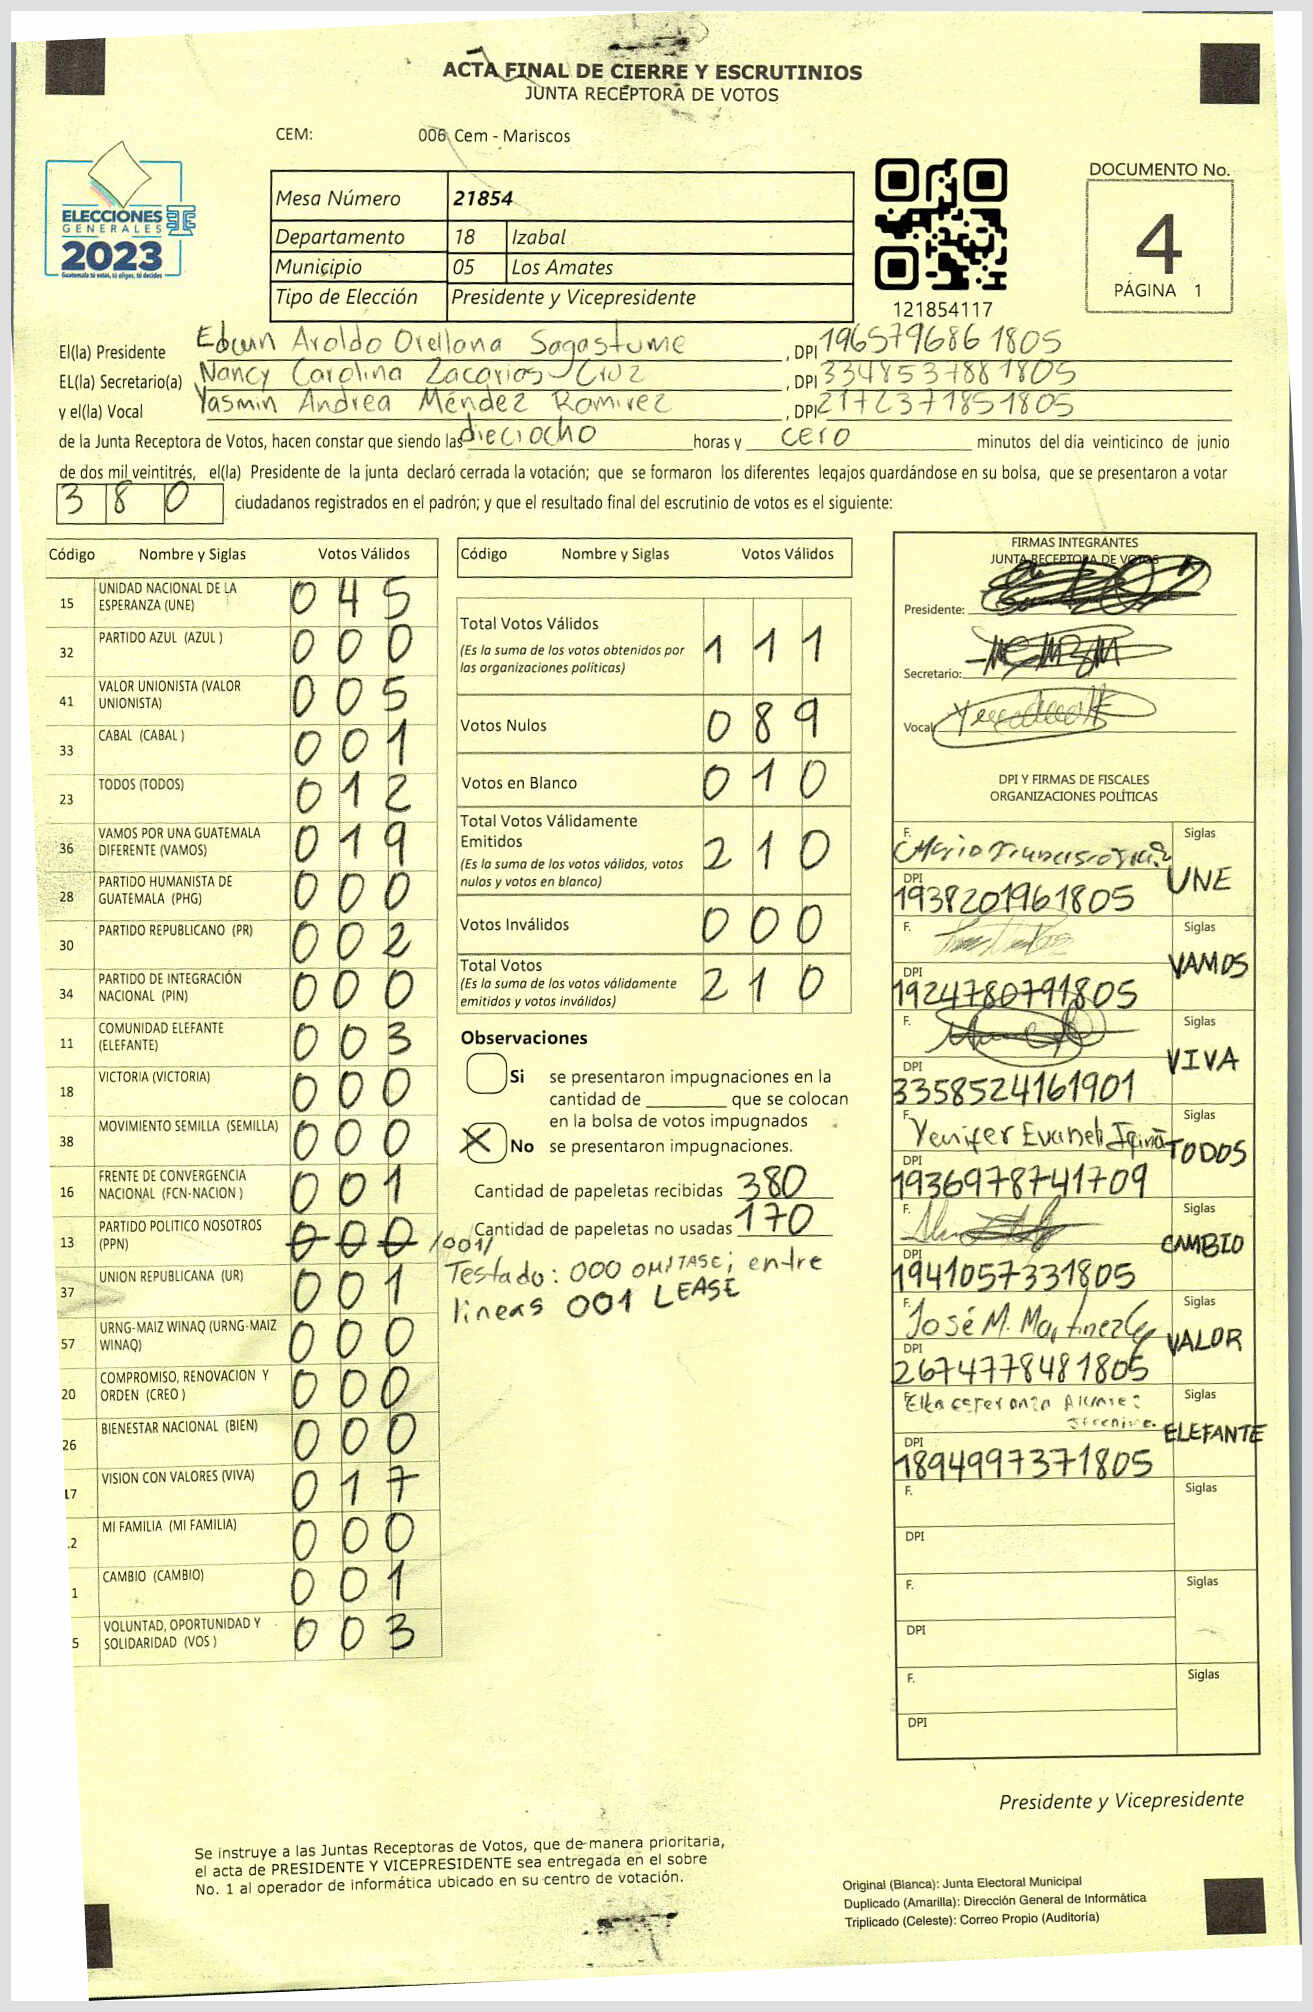 ACTA FINAL DE CIERRE Y ESCRUTINIOS
JUNTA RECEPTORA DE VOTOS
CEM: 006 Cem - Mariscos
ELECCIONES
GENERALES
2023
Guatemala tú votas, tú eliges, tú decides
Mesa Número 21854
Departamento 18 Izabal
Municipio 05 Los Amates
Tipo de Elección Presidente y Vicepresidente
121854117
DOCUMENTO No.
4
PÁGINA 1
El(la) Presidente Edwin Aroldo Orellana Sagastume , DPI 1965796861805
EL(la) Secretario(a) Nancy Carolina Zacarias Cruz , DPI 3348537881805
y el(la) Vocal Yasmin Andrea Méndez Ramirez , DPI 2172371851805
de la Junta Receptora de Votos, hacen constar que siendo las dieciocho horas y cero minutos del día veinticinco de junio
de dos mil veintitrés, el(la) Presidente de la junta declaró cerrada la votación; que se formaron los diferentes legajos guardándose en su bolsa, que se presentaron a votar
380 ciudadanos registrados en el padrón; y que el resultado final del escrutinio de votos es el siguiente:
Código Nombre y Siglas Votos Válidos
15 UNIDAD NACIONAL DE LA ESPERANZA (UNE) 045
32 PARTIDO AZUL (AZUL ) 000
41 VALOR UNIONISTA (VALOR UNIONISTA) 005
33 CABAL (CABAL ) 001
23 TODOS (TODOS) 012
36 VAMOS POR UNA GUATEMALA DIFERENTE (VAMOS) 019
28 PARTIDO HUMANISTA DE GUATEMALA (PHG) 000
30 PARTIDO REPUBLICANO (PR) 002
34 PARTIDO DE INTEGRACIÓN NACIONAL (PIN) 000
11 COMUNIDAD ELEFANTE (ELEFANTE) 003
18 VICTORIA (VICTORIA) 000
38 MOVIMIENTO SEMILLA (SEMILLA) 000
16 FRENTE DE CONVERGENCIA NACIONAL (FCN-NACION ) 001
13 PARTIDO POLITICO NOSOTROS (PPN) 000 /001/
37 UNION REPUBLICANA (UR) 001
57 URNG-MAIZ WINAQ (URNG-MAIZ WINAQ) 000
20 COMPROMISO, RENOVACION Y ORDEN (CREO ) 000
26 BIENESTAR NACIONAL (BIEN) 000
17 VISION CON VALORES (VIVA) 017
2 MI FAMILIA (MI FAMILIA) 000
1 CAMBIO (CAMBIO) 001
5 VOLUNTAD, OPORTUNIDAD Y SOLIDARIDAD (VOS ) 003
Código Nombre y Siglas Votos Válidos
Total Votos Válidos 111
(Es la suma de los votos obtenidos por
las organizaciones politicas)
Votos Nulos 089
Votos en Blanco 010
Total Votos Válidamente
Emitidos 210
(Es la suma de los votos válidos, votos
nulos y votos en blanco)
Votos Inválidos 000
Total Votos 210
(Es la suma de los votos válidamente
emitidos y votos inválidos)
Observaciones
Si se presentaron impugnaciones en la
cantidad de ________ que se colocan
en la bolsa de votos impugnados
X No se presentaron impugnaciones.
Cantidad de papeletas recibidas 380
Cantidad de papeletas no usadas 170
Testado: 000 OMITASE; entre
lineas 001 LEASE
FIRMAS INTEGRANTES
JUNTA RECEPTORA DE VOTOS
Presidente:
Secretario:
Vocal:
DPI Y FIRMAS DE FISCALES
ORGANIZACIONES POLÍTICAS
F. Mario Francisco Siglas
DPI 1938201961805 UNE
F. Siglas
DPI 1924780791805 VAMOS
F. Siglas
DPI 3358524161901 VIVA
F. Yenifer Siglas
DPI 1936978741709 TODOS
F. Siglas
DPI 1941057331805 CAMBIO
F. José M. Martinez Siglas
DPI 2674778481805 VALOR
F. Siglas
DPI 1894997371805 ELEFANTE
F. Siglas
DPI
F. Siglas
DPI
F. Siglas
DPI
Presidente y Vicepresidente
Se instruye a las Juntas Receptoras de Votos, que de manera prioritaria,
el acta de PRESIDENTE Y VICEPRESIDENTE sea entregada en el sobre
No. 1 al operador de informática ubicado en su centro de votación.
Original (Blanca): Junta Electoral Municipal
Duplicado (Amarilla): Dirección General de Informática
Triplicado (Celeste): Correo Propio (Auditoría)